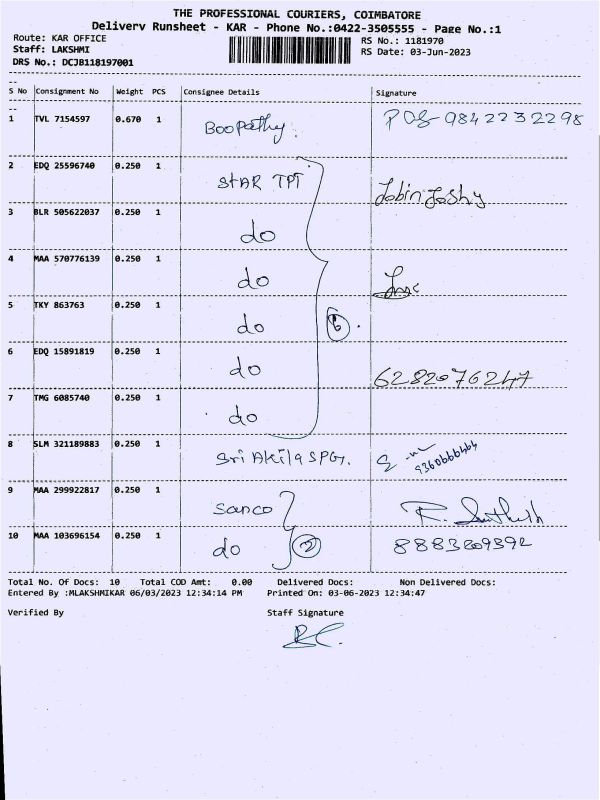 THE PROFESSIONAL COURIERS, COIMBATORE
Delivery Runsheet - KAR - Phone No.:0422-3505555 - Page No.:1
Route: KAR OFFICE RS No.: 1181970
Staff: LAKSHMI RS Date: 03-Jun-2023
DRS No.: DCJB118197001
S No Consignment No Weight PCS Consignee Details Signature
1 TVL 7154597 0.670 1 Boopathy. 9842232298
2 EDQ 25596740 0.250 1 STAR TPT Jobin Joshy
3 BLR 505622037 0.250 1 do
4 MAA 570776139 0.250 1 do
5 TKY 863763 0.250 1 do 6.
6 EDQ 15891819 0.250 1 do 6282076247
7 TMG 6085740 0.250 1 do
8 SLM 321189883 0.250 1 Sri Akila SPG. 9360666464
9 MAA 299922817 0.250 1 Sanco
10 MAA 103696154 0.250 1 do 2 8883209392
Total No. Of Docs: 10 Total COD Amt: 0.00 Delivered Docs: Non Delivered Docs:
Entered By :MLAKSHMIKAR 06/03/2023 12:34:14 PM Printed On: 03-06-2023 12:34:47
Verified By Staff Signature